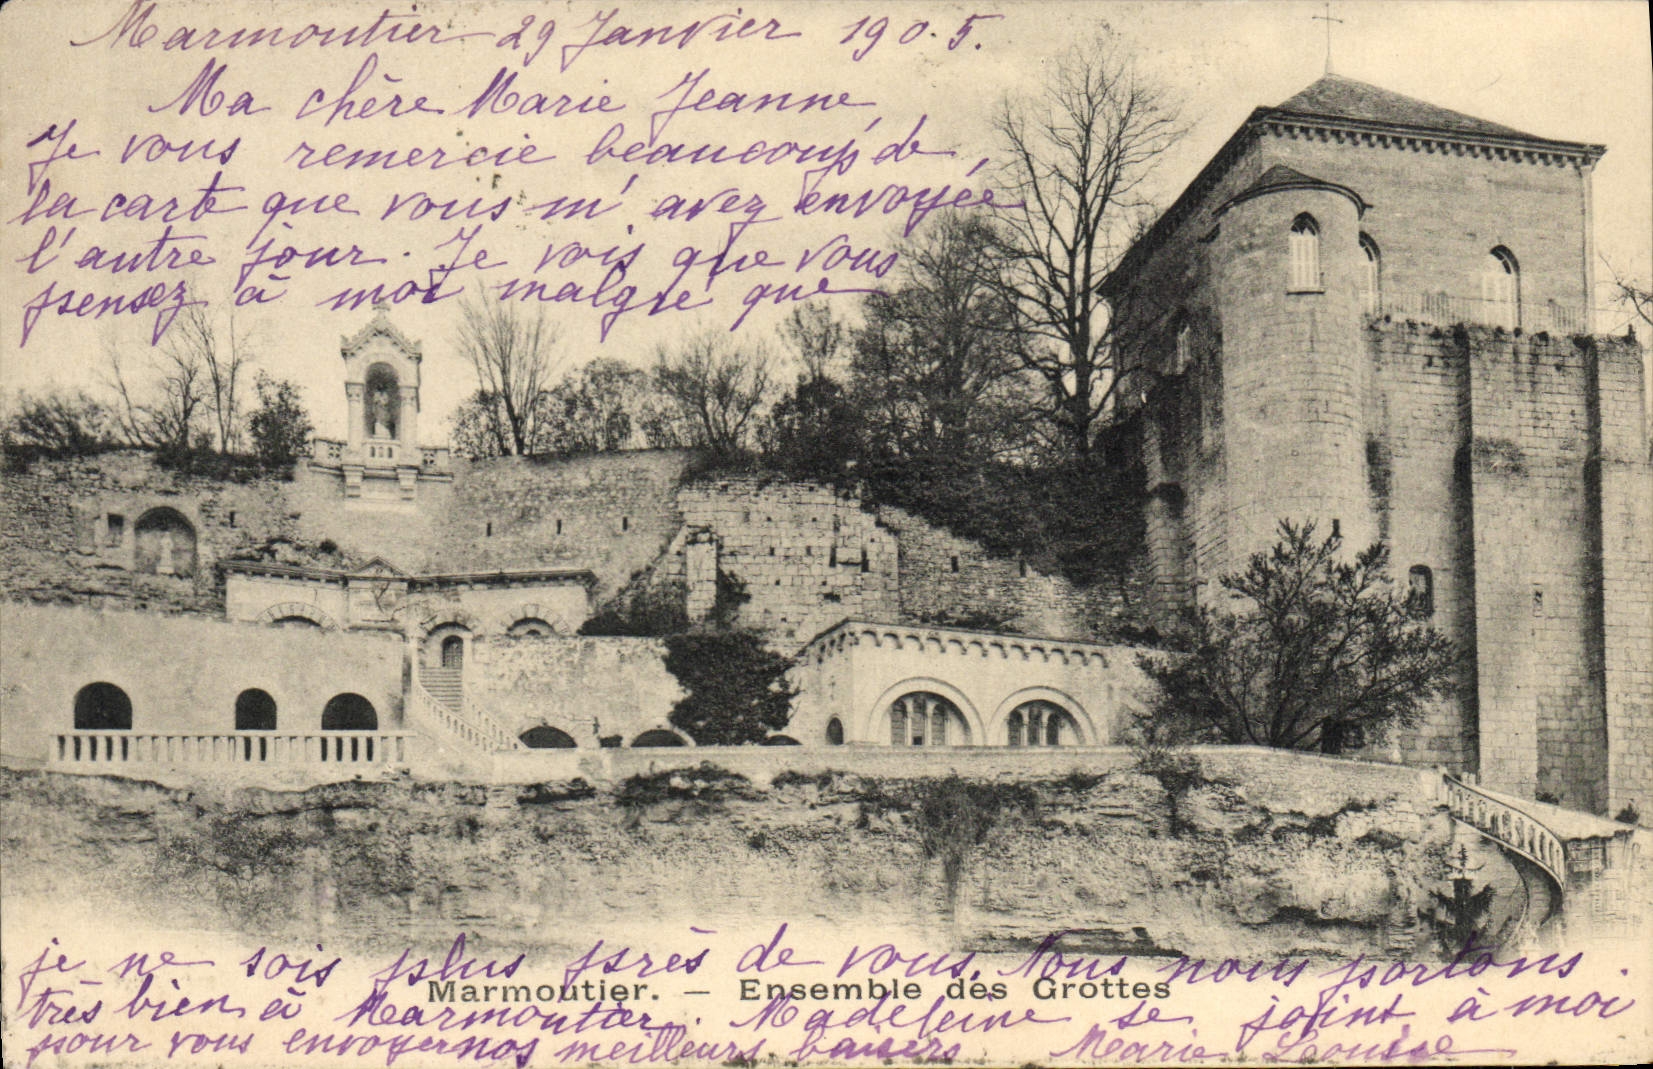 Marmoutier 29 Janvier 190.5.
Ma chère Marie Jeanne,
Je vous remercie beaucoup de
la carte que vous m'avez envoyée
l'autre jour. Je vois que vous
pensez à moi malgré que
je ne sois plus près de vous. Nous nous portons
très bien à Marmoutier. Madeleine se joint à moi
Marmoutier. — Ensemble des Grottes
pour vous envoyer nos meilleurs baisers Marie Louise